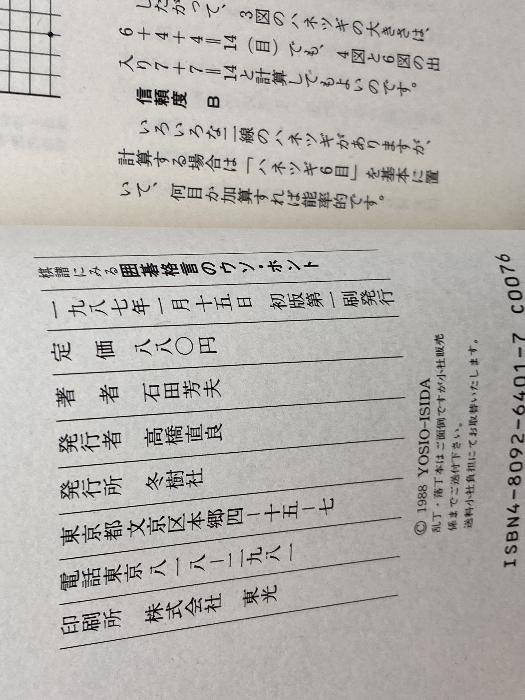 したがって、3図のハネツギの大きさは、
6+4+4=14(目)でも、4図と6図の出
入り7+7=14と計算してもよいのです。
信頼度 B
いろいろな二線のハネツギがありますが、
計算する場合は「ハネツギ6目」を基本に置
いて、何目か加算すれば能率的です。
棋譜にみる囲碁格言のウソ・ホント
一九八七年一月十五日 初版第一刷発行
定価 八八〇円
著者 石田芳夫
発行者 高橋直良
発行所 冬樹社
東京都文京区本郷四−十五−七
電話東京八一八−二九八一
印刷所 株式会社 東光
© 1988 YOSIO-ISIDA
乱丁・落丁本はご面倒ですが小社販売
係までご送付下さい。
送料小社負担にてお取替いたします。
ISBN4-8092-6401-7 C0076